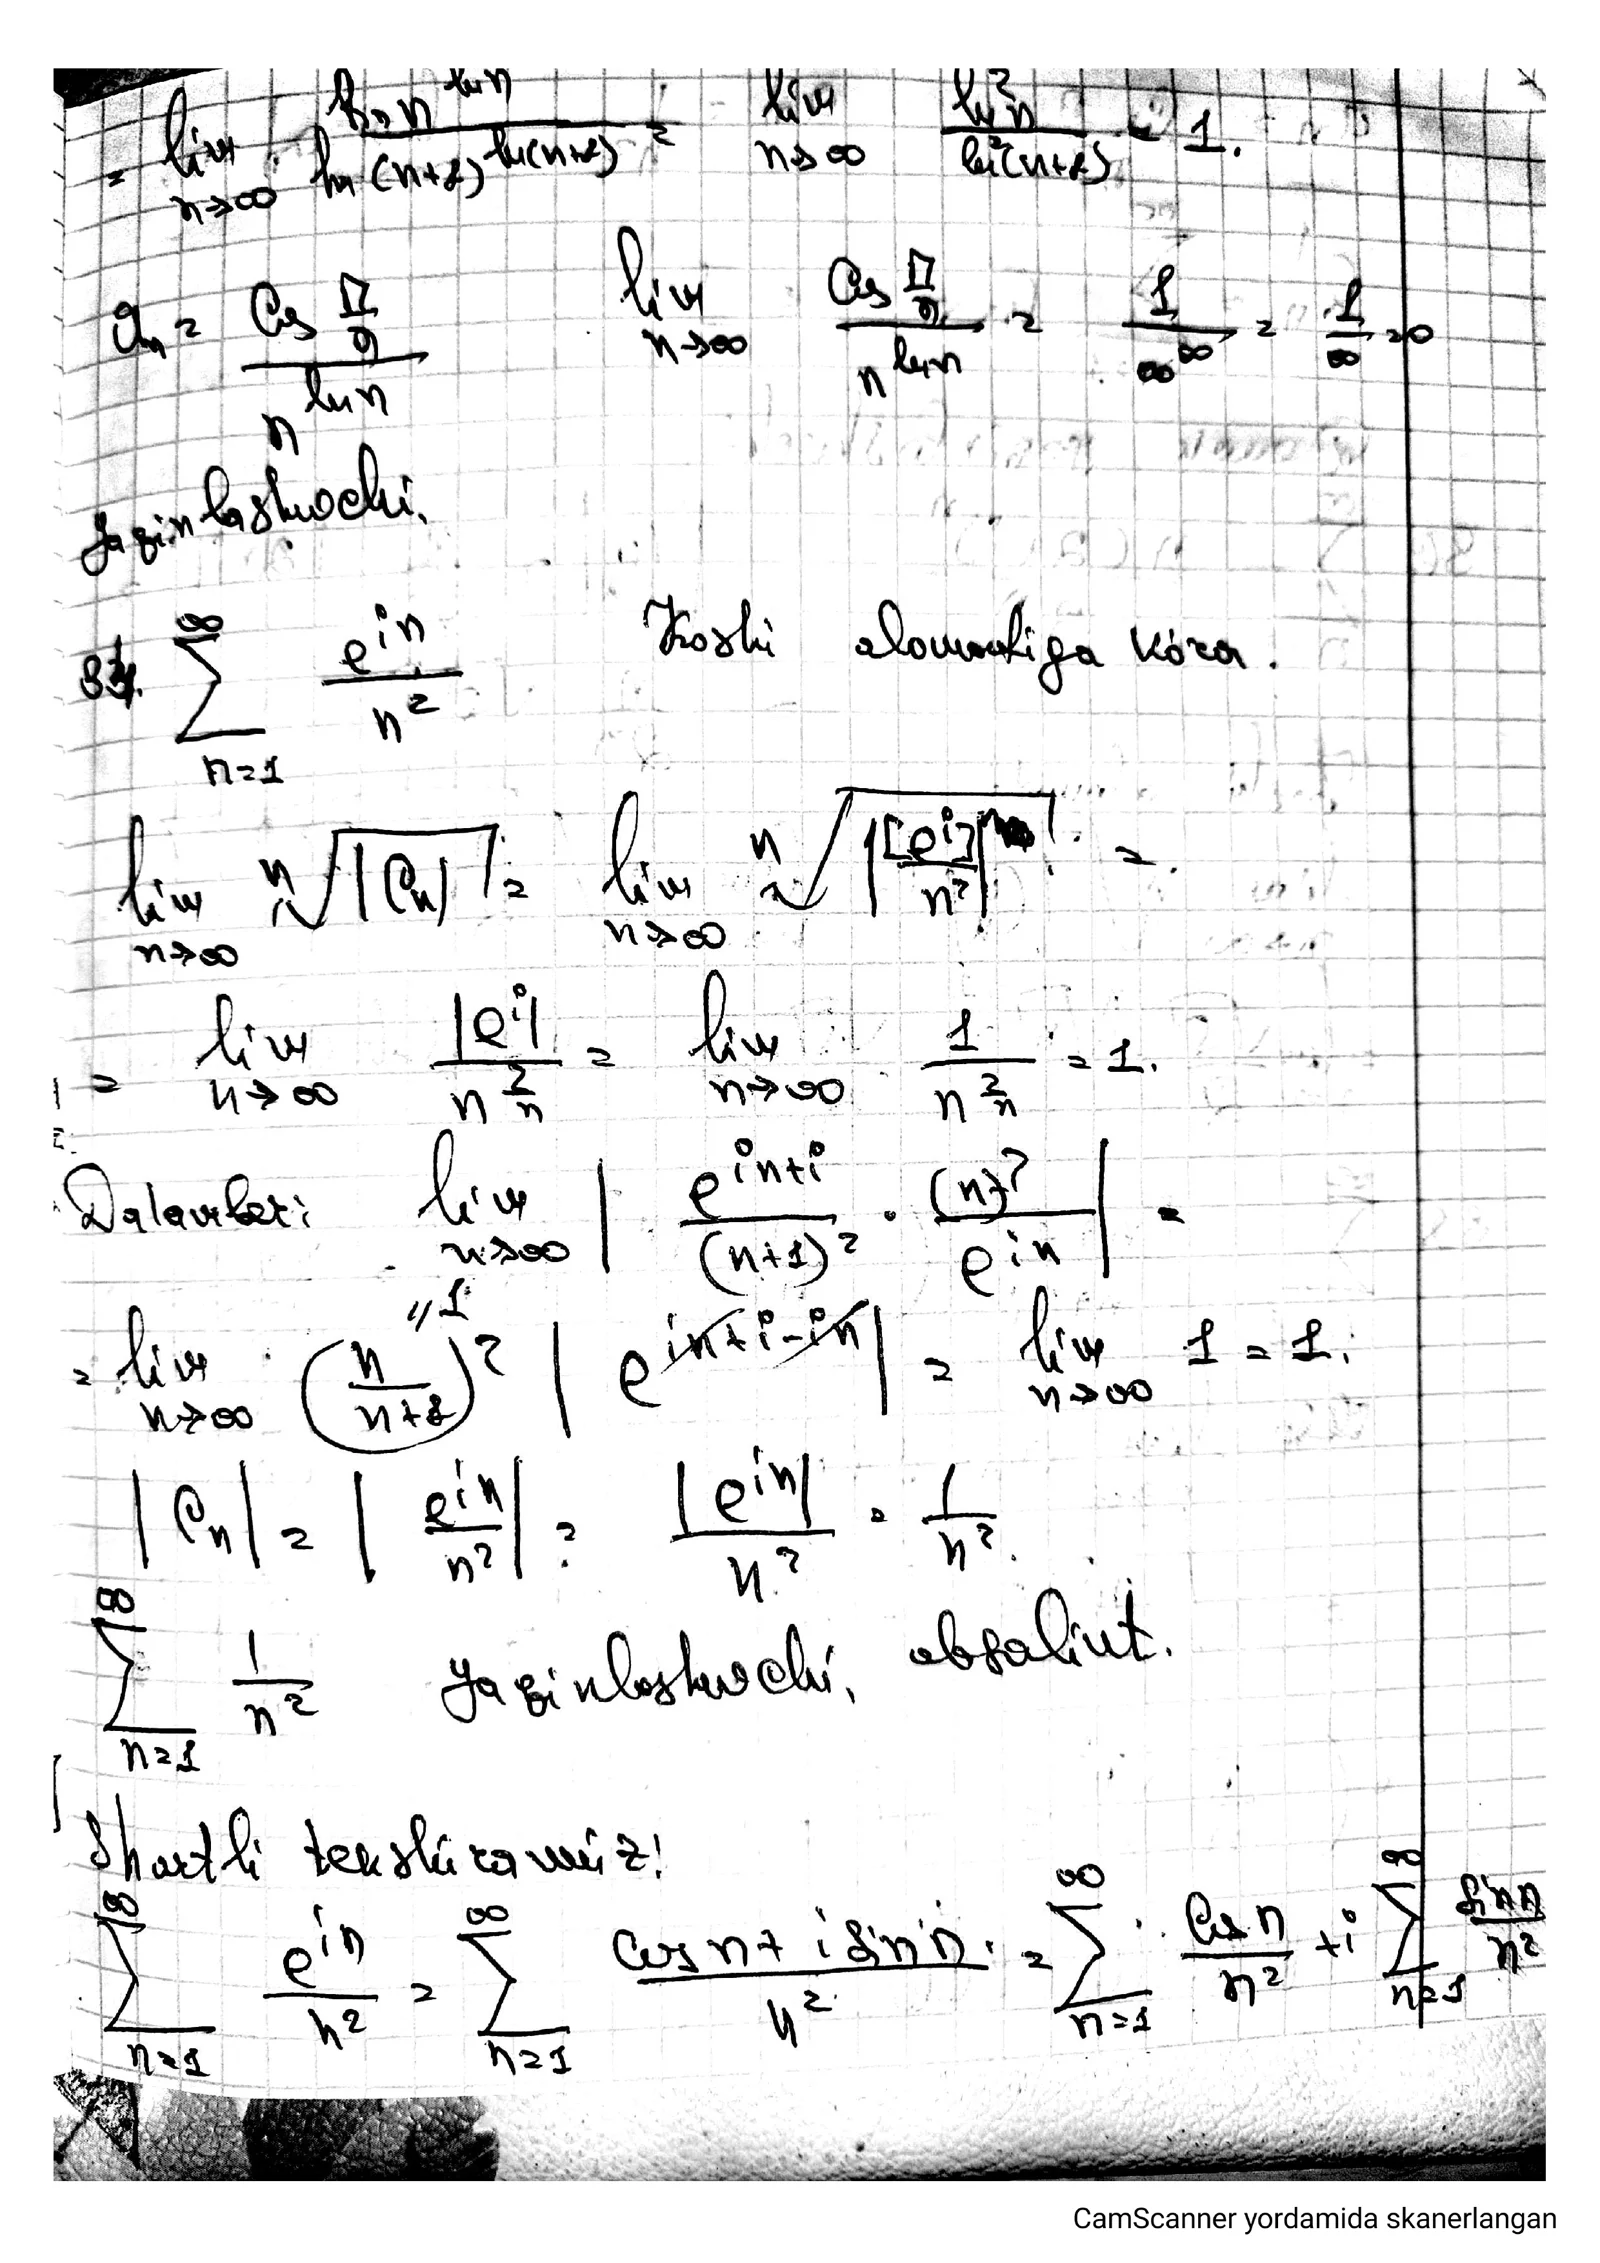 = lim n→∞ ln n^{ln n} / ln(n+1)^{ln(n+1)} = lim n→∞ ln²n / ln²(n+1) = 1.
a_n = cos π/n / n^{ln n}   lim n→∞ cos π/n / n^{ln n} = 1/∞^∞ = 1/∞ = 0
yaqinlashuvchi.
∑_{n=1}^{∞} e^{in} / n²   Koshi alomatiga ko'ra.
lim n→∞ ⁿ√|C_n| = lim n→∞ ⁿ√|[e^i]^n / n²| =
= lim n→∞ |e^i| / n^{2/n} = lim n→∞ 1 / n^{2/n} = 1.
Dalamber: lim n→∞ | e^{in+i} / (n+1)² · (n)² / e^{in} | =
= lim n→∞ (n / n+1)² "1 | e^{in+i-in} | = lim n→∞ 1 = 1.
|C_n| = | e^{in} / n² | = |e^{in}| / n² = 1 / n².
∑_{n=1}^{∞} 1 / n²   yaqinlashuvchi, absaliut.
Shartli tekshiramiz!
∑_{n=1}^{∞} e^{in} / n² = ∑_{n=1}^{∞} cos n + i sin n / n² = ∑_{n=1}^{∞} cos n / n² + i ∑_{n=1}^{∞} sin n / n²
CamScanner yordamida skanerlangan